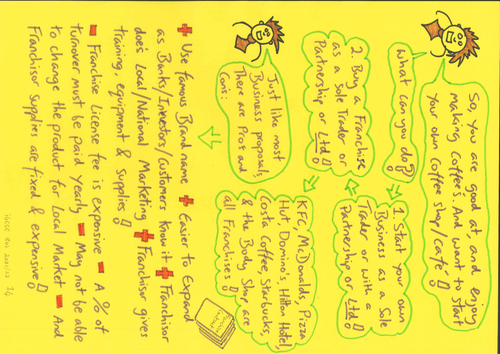 So, you are good at and enjoy
making Coffee's. And want to start
your own Coffee shop/café!
What can you do?
1. Start your own
Business as a Sole
Trader or with a
partnership or Ltd!
2. Buy a Franchise
as a Sole Trader or
Partnership or Ltd!
KFC, McDonalds, Pizza
Hut, Domino's Hilton Hotel,
Costa Coffee, Starbucks
& the Body Shop are
all Franchises!
Just like most
Business proposals,
There are Pros and
Con's!
+ Use famous Brand name + Easier to Expand
as Banks/Investors/Customers know it + Franchisor
does Local/National Marketing + Franchisor gives
training, equipment & supplies!
- Franchise License fee is expensive - A % of
turnover must be paid yearly - May not be able
to change the product for Local Market - And
Franchisor supplies are fixed & expensive!